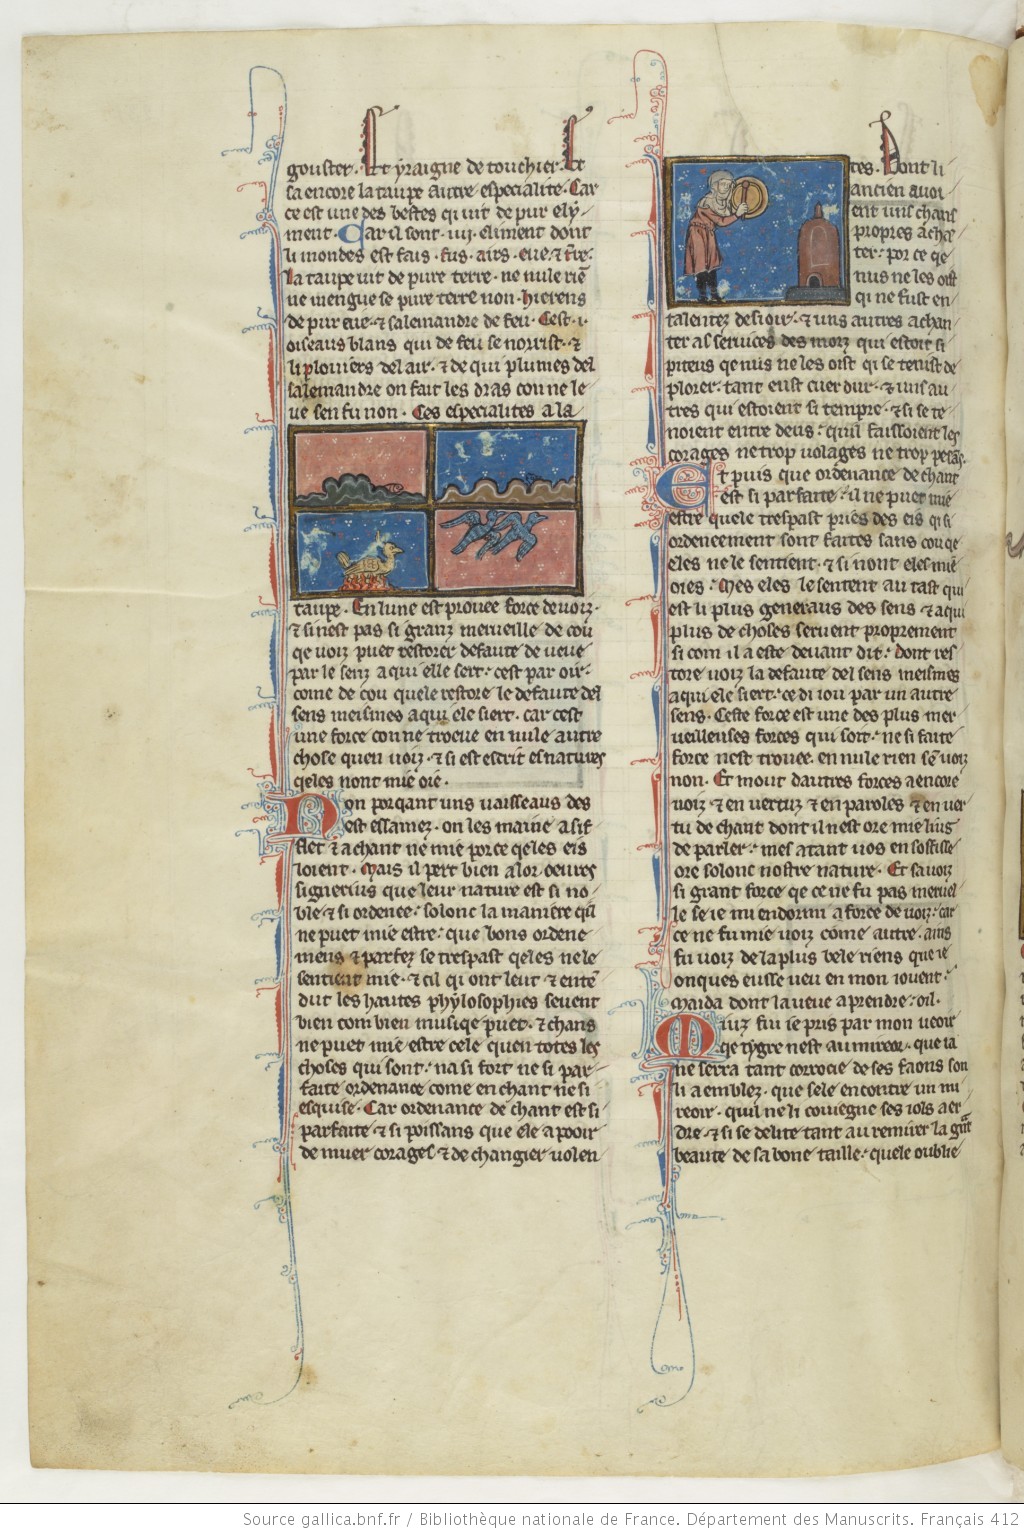 gouster. Et yraigne de touchier. Et
sa encore la taupe autre especialite. Car
ce est une des bestes qi uit de pur ely-
ment. Car il sont .iiii. eliment dont
li mondes est fais. fus. airs. eue. & tr̄re.
La taupe uit de pure terre. ne nule riē
ne mengue se pure terre non. hierens
de pur eue. & salemandre de feu. Cest .i.
oiseaus blans qui de feu se norrist. &
li plouiers del air. & de qui plumes del
salemandre on fait les dras con ne le-
ue sen fu non. Ces especialites a la
taupe. En lune est prouee force de uoiz.
& si nest pas si granz merueille de cou
qe uoiz puet restorer defaute de ueue
par le senz a qui elle sert. cest par oir.
come de cou quele restore le defaute del
sens meismes a qui ele siert. car cest
une force con ne troeue en nule autre
chose quen uoiz. & si est escrit es natures
qeles nont mie oie.
Non porqant uns uaisseaus des
est essamez. on les maine a sif-
flet & a chant ne mie porce qe les eis
loient. Mais il pert bien a lor oeures
signerius que leur nature est si no-
ble & si ordenee. solonc la maniere qil
ne puet mie estre. que bons ordene
mens & parfez se trespast qeles ne le
sentient mie. & cil qi ont leut & entē
dut les hautes phylosophies seuent
bien com bien musiqe puet. & chans
ne puet mie estre cele quen totes les
choses qui sont. na si fort ne si par-
faite ordenance come en chant ne si
esquise. Car ordenance de chant est si
parfaite & si poissans que ele a pooir
de muer corages & de changier uolen
tes. Dont li
ancien auoi-
ent uns chans
propres a choen
ter. por ce qe
nus ne les oist
qi ne fust en-
talentez desioir. & uns autres a chan-
ter as seruices des morz qui estoit si
piteus qe nus ne les oist qi se tenist de
plorer. tant eust cuer dur. & uns au-
tres qui estoient si tempre. & si se te-
noient entre deus. quil faissoient les
corages ne trop uolages ne trop pesās.
Et puis que ordenance de chant
est si parfaite. il ne puet mie
estre quele trespast pries des eis qi si
ordeneement sont faites sans cou qe
eles ne le sentient. & si nont eles mie
oies. Mes eles le sentent au tast qui
est li plus generaus des sens & a qui
plus de choses seruent proprement
si com il a este deuant dit. dont res-
tore uoiz la defaute del sens meismes
a qui ele siert. ce di iou par un autre
sens. Ceste force est une des plus mer-
ueilleuses forces qui sont. ne si faite
force nest trouee. en nule rien sē uoiz
non. Et mout dautres forces a encore
uoiz & en uertuz & en paroles & en uer
tu de chant dont il nest ore mie liug
de parler. mes atant uos en soffisse
ore solonc nostre nature. Et sa uoiz
si grant force qe ce ne fu pas meruel
le se ie mi endormi a force de uoiz. car
ce ne fu mie uoiz cōme autre. ains
fu uoiz de la plus bele riens que ie
onques eusse ueu en mon iouent.
Maida dont la ueue a prendre. oil.
Miuz fui ie pris par mon ueoir
qe tygre nest au mireor. que ia
ne serra tant corrocie de ses faons son
li a emblez. que sele encontre un mi
reoir. quil ne li couiegne ses iols aer-
dre. & si se delite tant au remirer la grāt
beaute de sa bone taille. quele oublie
Source gallica.bnf.fr / Bibliothèque nationale de France. Département des Manuscrits. Français 412